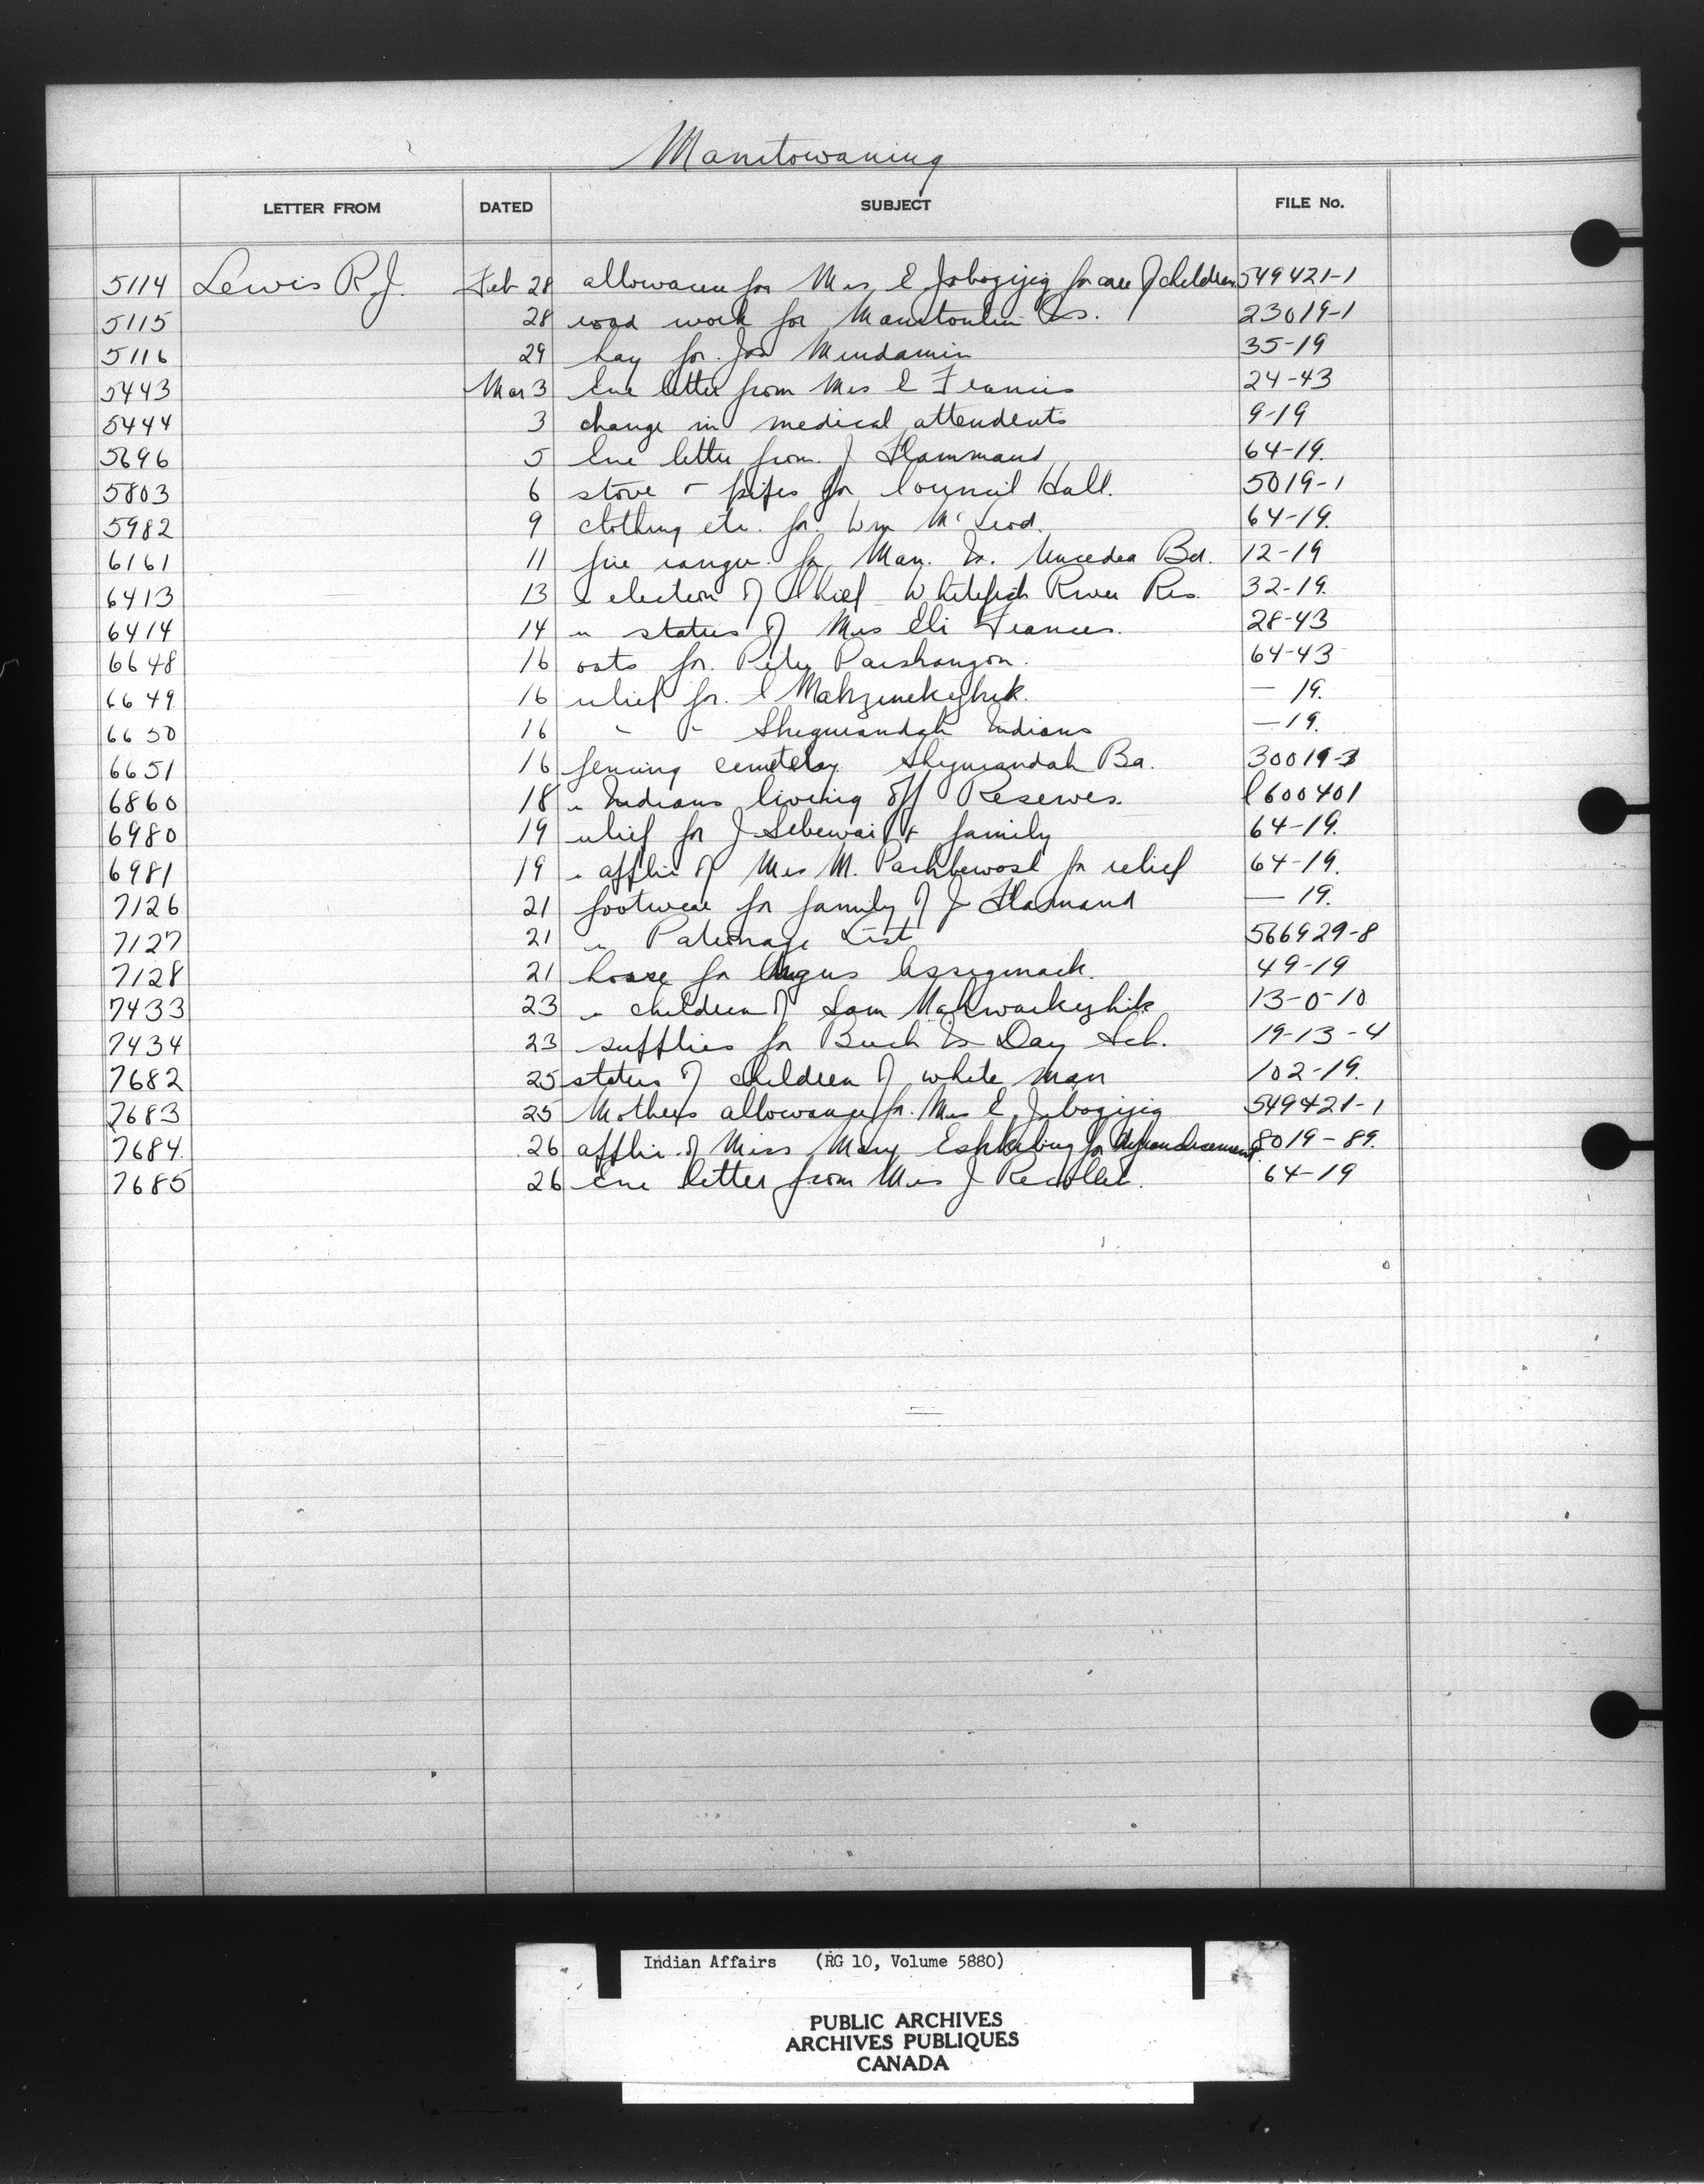 Manitowaning
LETTER FROM DATED SUBJECT FILE No.
5114 Lewis R.J. Feb 28 allowance for Mrs E Jabogijig for care of children 549421-1
5115 28 road work for Manitoulin Is. 23019-1
5116 29 hay for Jos Mindamin 35-19
5443 Mar 3 Enc letter from Mrs E Francis 24-43
5444 3 change in medical attendents 9-19
5696 5 Enc letter from J Hammand 64-19.
5803 6 stove & pipes for Council Hall. 5019-1
5982 9 clothing etc. for Wm McLeod. 64-19.
6161 11 fire ranger for Man. Is. Unceded Bd. 12-19
6413 13 election of Chief Whitefish River Res. 32-19.
6414 14 " status of Mrs Eli Frances. 28-43
6648 16 oats for Peter Paishangon. 64-43
6649 16 relief for E — 19.
6650 16 " " Sheguiandah Indians — 19.
6651 16 fencing cemetery Sheguiandah Ba. 30019-3
6860 18 " Indians living off Reserves. 600401
6980 19 relief for J & family 64-19.
6981 19 " applic of Mrs M. for relief 64-19.
7126 21 footwear for family of J Hamand — 19.
7127 21 " Patronage List 566929-8
7128 21 house for Angus Assiginack. 49-19
7433 23 " children of Sam 13-0-10
7434 23 supplies for Buck Is Day Sch. 19-13-4
7682 25 status of children of white man 102-19.
7683 25 Mothers allowance for Mrs E Jabogijig 549421-1
7684. 26 applic. of Miss Mary for 8019-89.
7685 26 Enc letter from Mrs J Recollet. 64-19
Indian Affairs (RG 10, Volume 5880)
PUBLIC ARCHIVES
ARCHIVES PUBLIQUES
CANADA